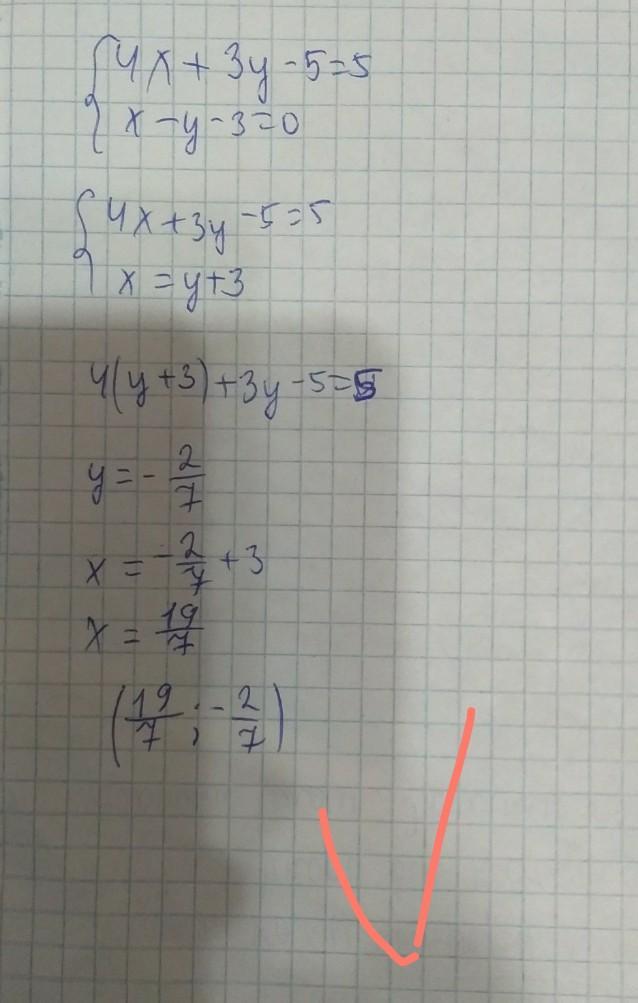 4x + 3y - 5 = 5
x - y - 3 = 0
4x + 3y - 5 = 5
x = y + 3
4(y + 3) + 3y - 5 = 5
y = - 2/7
x = - 2/7 + 3
x = 19/7
(19/7 ; - 2/7)